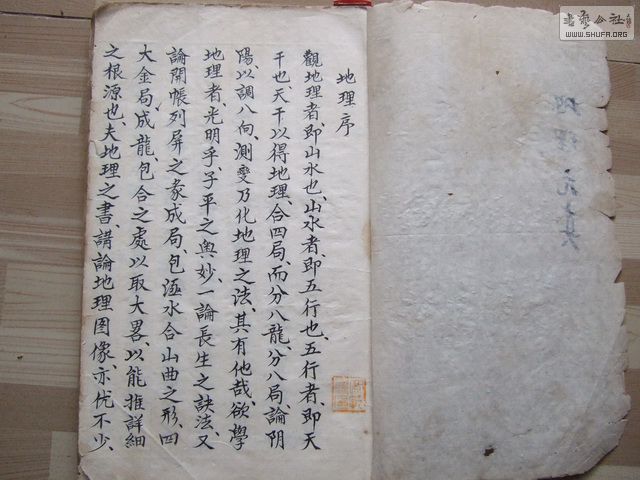 地理序
觀地理者、即山水也、山水者、即五行也、五行者即天
干也、天干以得地理、合四局、而分八龍、分八局論陰
陽、以調八向、測變乃化地理之法、其有他哉、欲學
地理者、光明乎、子平之奥妙、一論長生之訣法、又
論開帳列屏之象成局、包水合山曲之形、四
大金局、成龍、包合之處以取大畧、以能推詳細
之根源也、夫地理之書、講論地理图像、亦优不少、
書藝公社
WWW.SHUFA.ORG